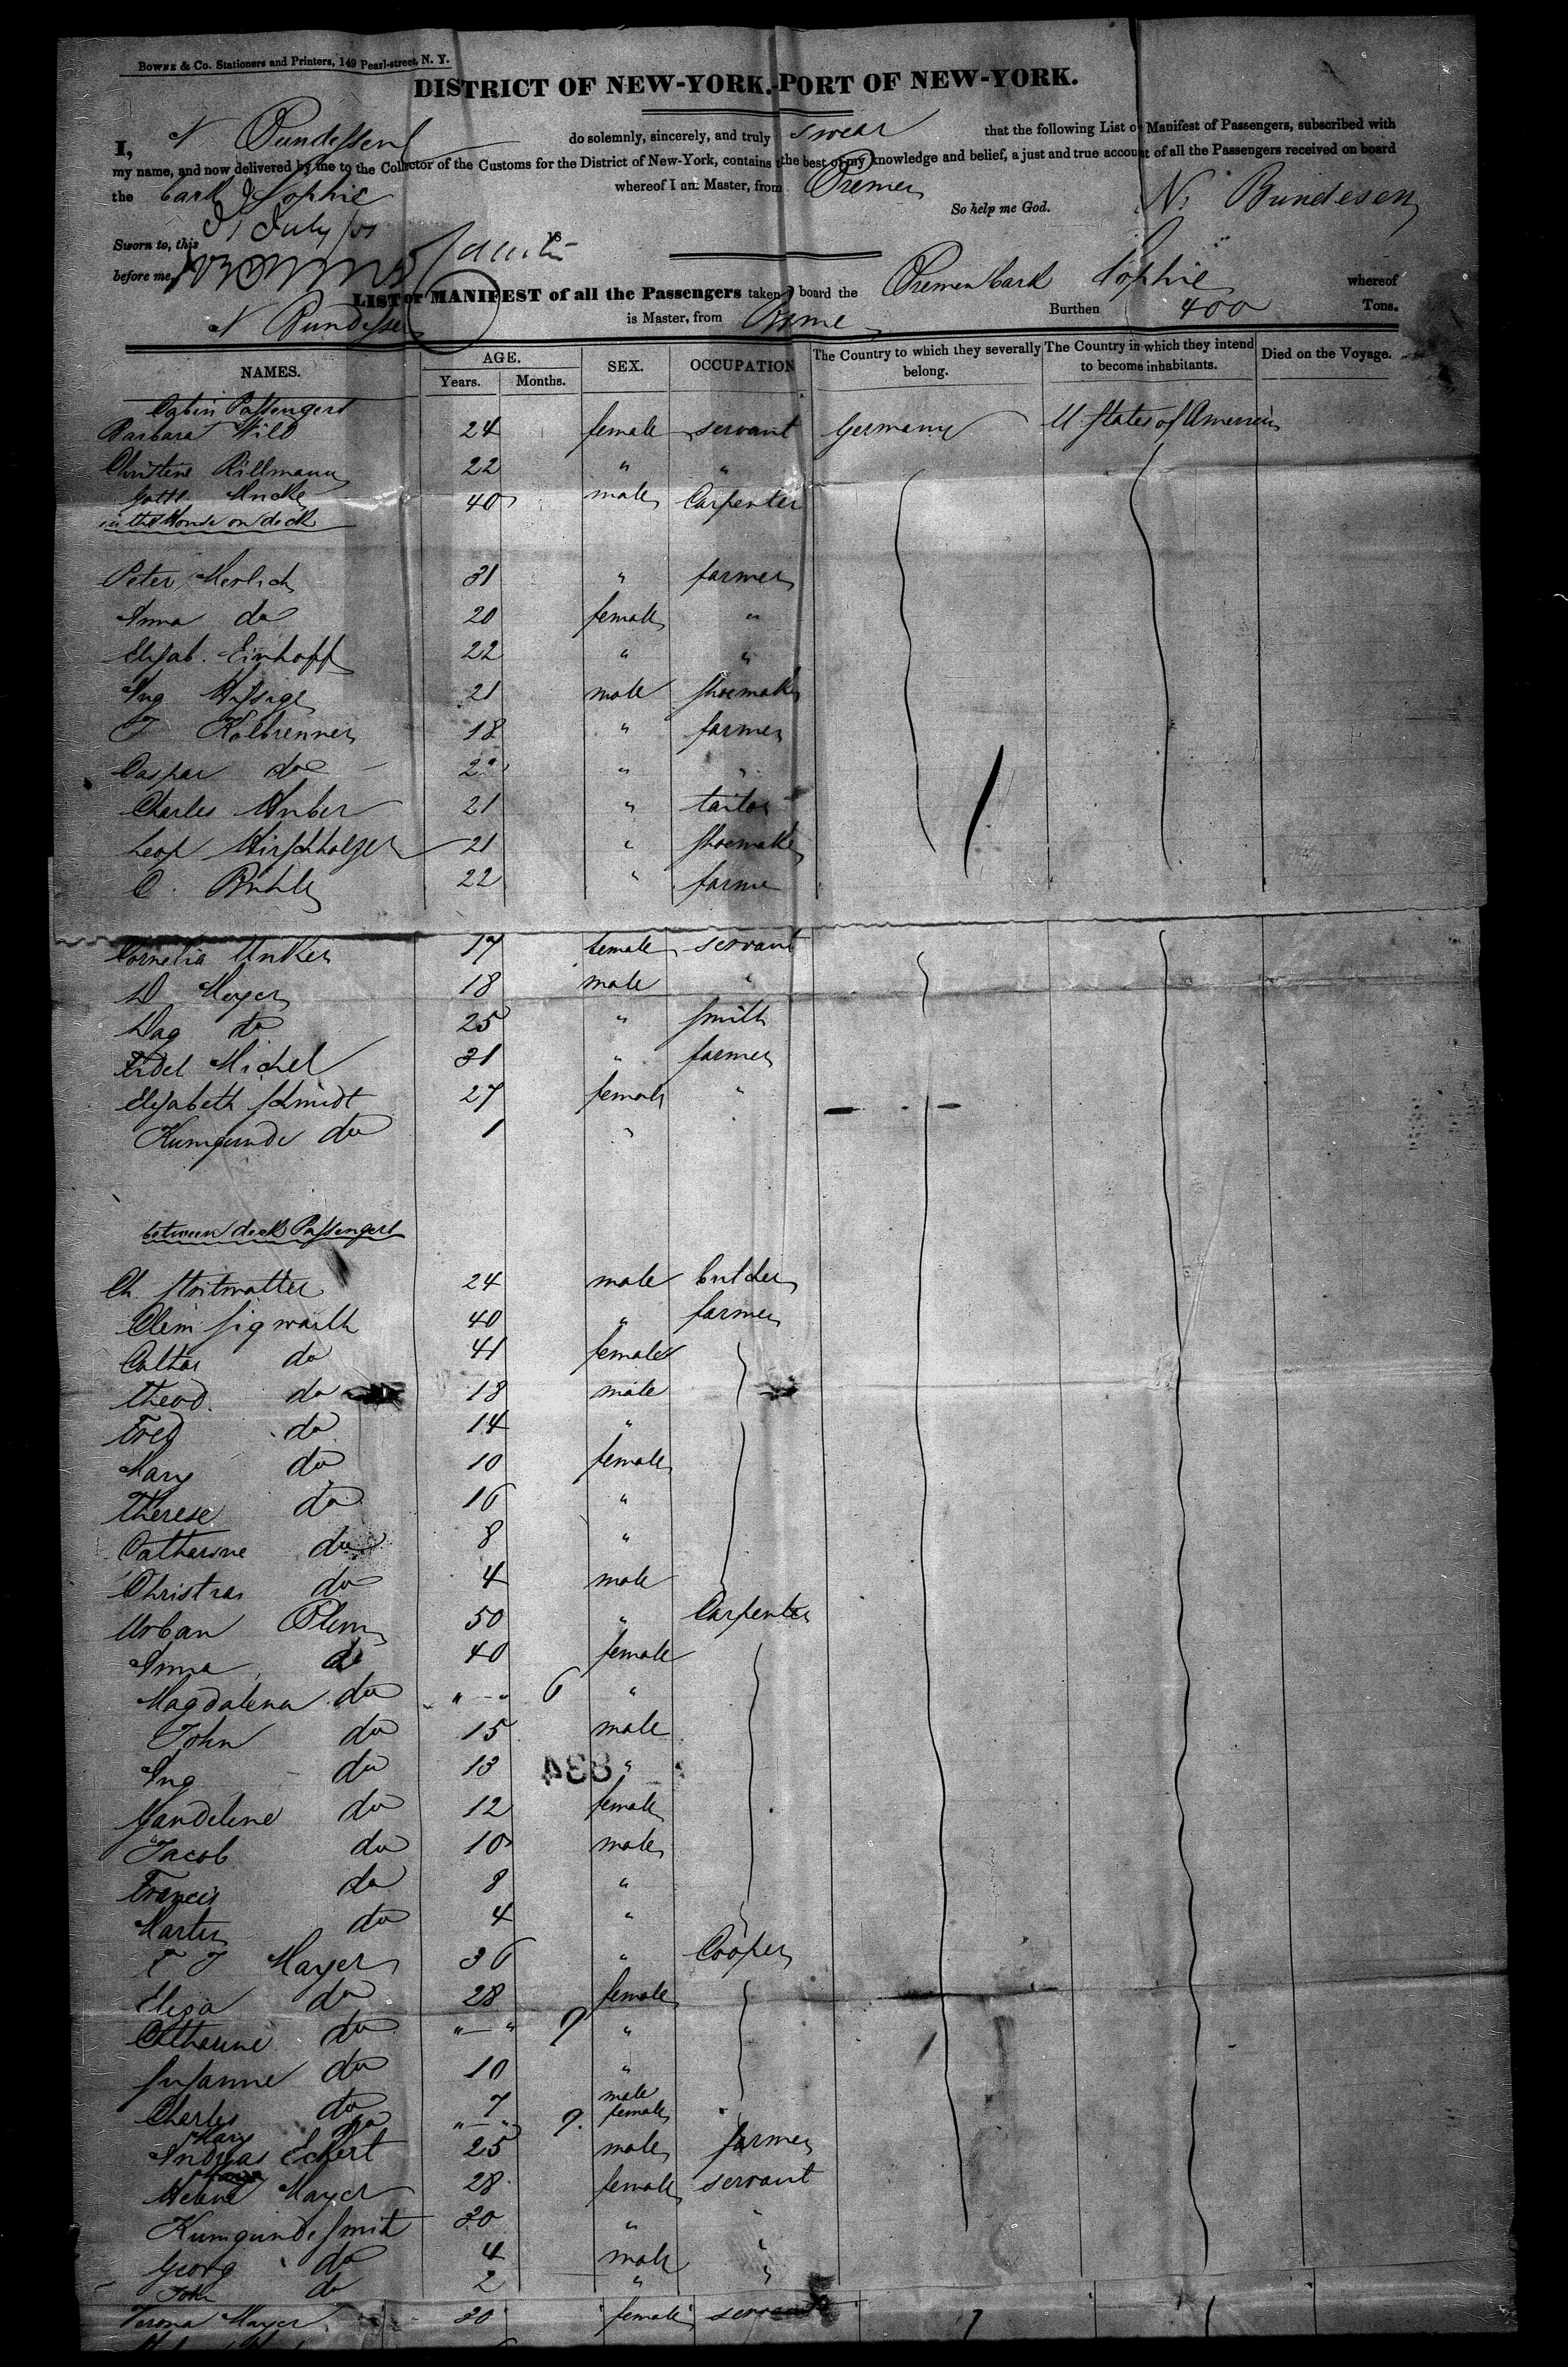 BOWNE & Co. Stationers and Printers, 149 Pearl-street, N. Y.
DISTRICT OF NEW-YORK.-PORT OF NEW-YORK.
I, N Bundessen do solemnly, sincerely, and truly swear that the following List or Manifest of Passengers, subscribed with
my name, and now delivered by me to the Collector of the Customs for the District of New-York, contains the best of my knowledge and belief, a just and true account of all the Passengers received on board
the bark Sophie whereof I am Master, from Bremen
So help me God. N. Bundesen
Sworn to, this 31 July 18
before me,
LIST or MANIFEST of all the Passengers taken board the Bremen bark Sophie whereof
N Bundessen is Master, from Breme Burthen 400 Tons.
NAMES. AGE. Years. Months. SEX. OCCUPATION The Country to which they severally belong. The Country in which they intend to become inhabitants. Died on the Voyage.
Cabin Passengers
Barbara Wild 24 female servant Germany U States of America
Christine Rillmann 22 " "
40 male Carpenter
in the House on deck
Peter Merlich 31 " farmer
Anna do 20 female "
Elisab. Einhoff 22 " "
Aug 21 male shoemaker
F Kolbrenner 18 " farmer
Caspar do 2 " "
Charles Huber 21 " tailor
Leop Hirschholzer 21 " shoemaker
C. Buhle 22 " farme
Cornelia Unker 17 female servant
D Meyer 18 male "
Dag do 25 " smith
Fidel Michel 31 " farmer
Elisabeth Schmidt 27 female "
Kumgunde do 1 "
between deck Passengers
Ch. Stritmatter 24 male butcher
Clem Sigwarth 40 " farmer
Cathar do 41 female
Theod. do 18 male
Fred do 14 "
Mary do 10 female
Therese do 16 "
Catharine do 8 "
Christian do 4 male
Urban Blum 50 " Carpenter
Anna do 40 female
Magdalena do " - " 6 "
John do 15 male
Aug do 13 "
834
Mandeline do 12 female
Jacob do 10 male
Francis do 8 "
Martin do 4 "
F J Mayer 36 " Cooper
Elisa do 28 female
Catharine do " - " 9 "
Susanne do 10 "
Charles do 7 male
Mary do " - " 9. female
Andreas Eckert 25 male farmer
Helene Mayer 28 female servant
Kumgunde Smit 30 " "
Georg do 4 male "
John do 2 " "
Verona Mayer 30 female servant